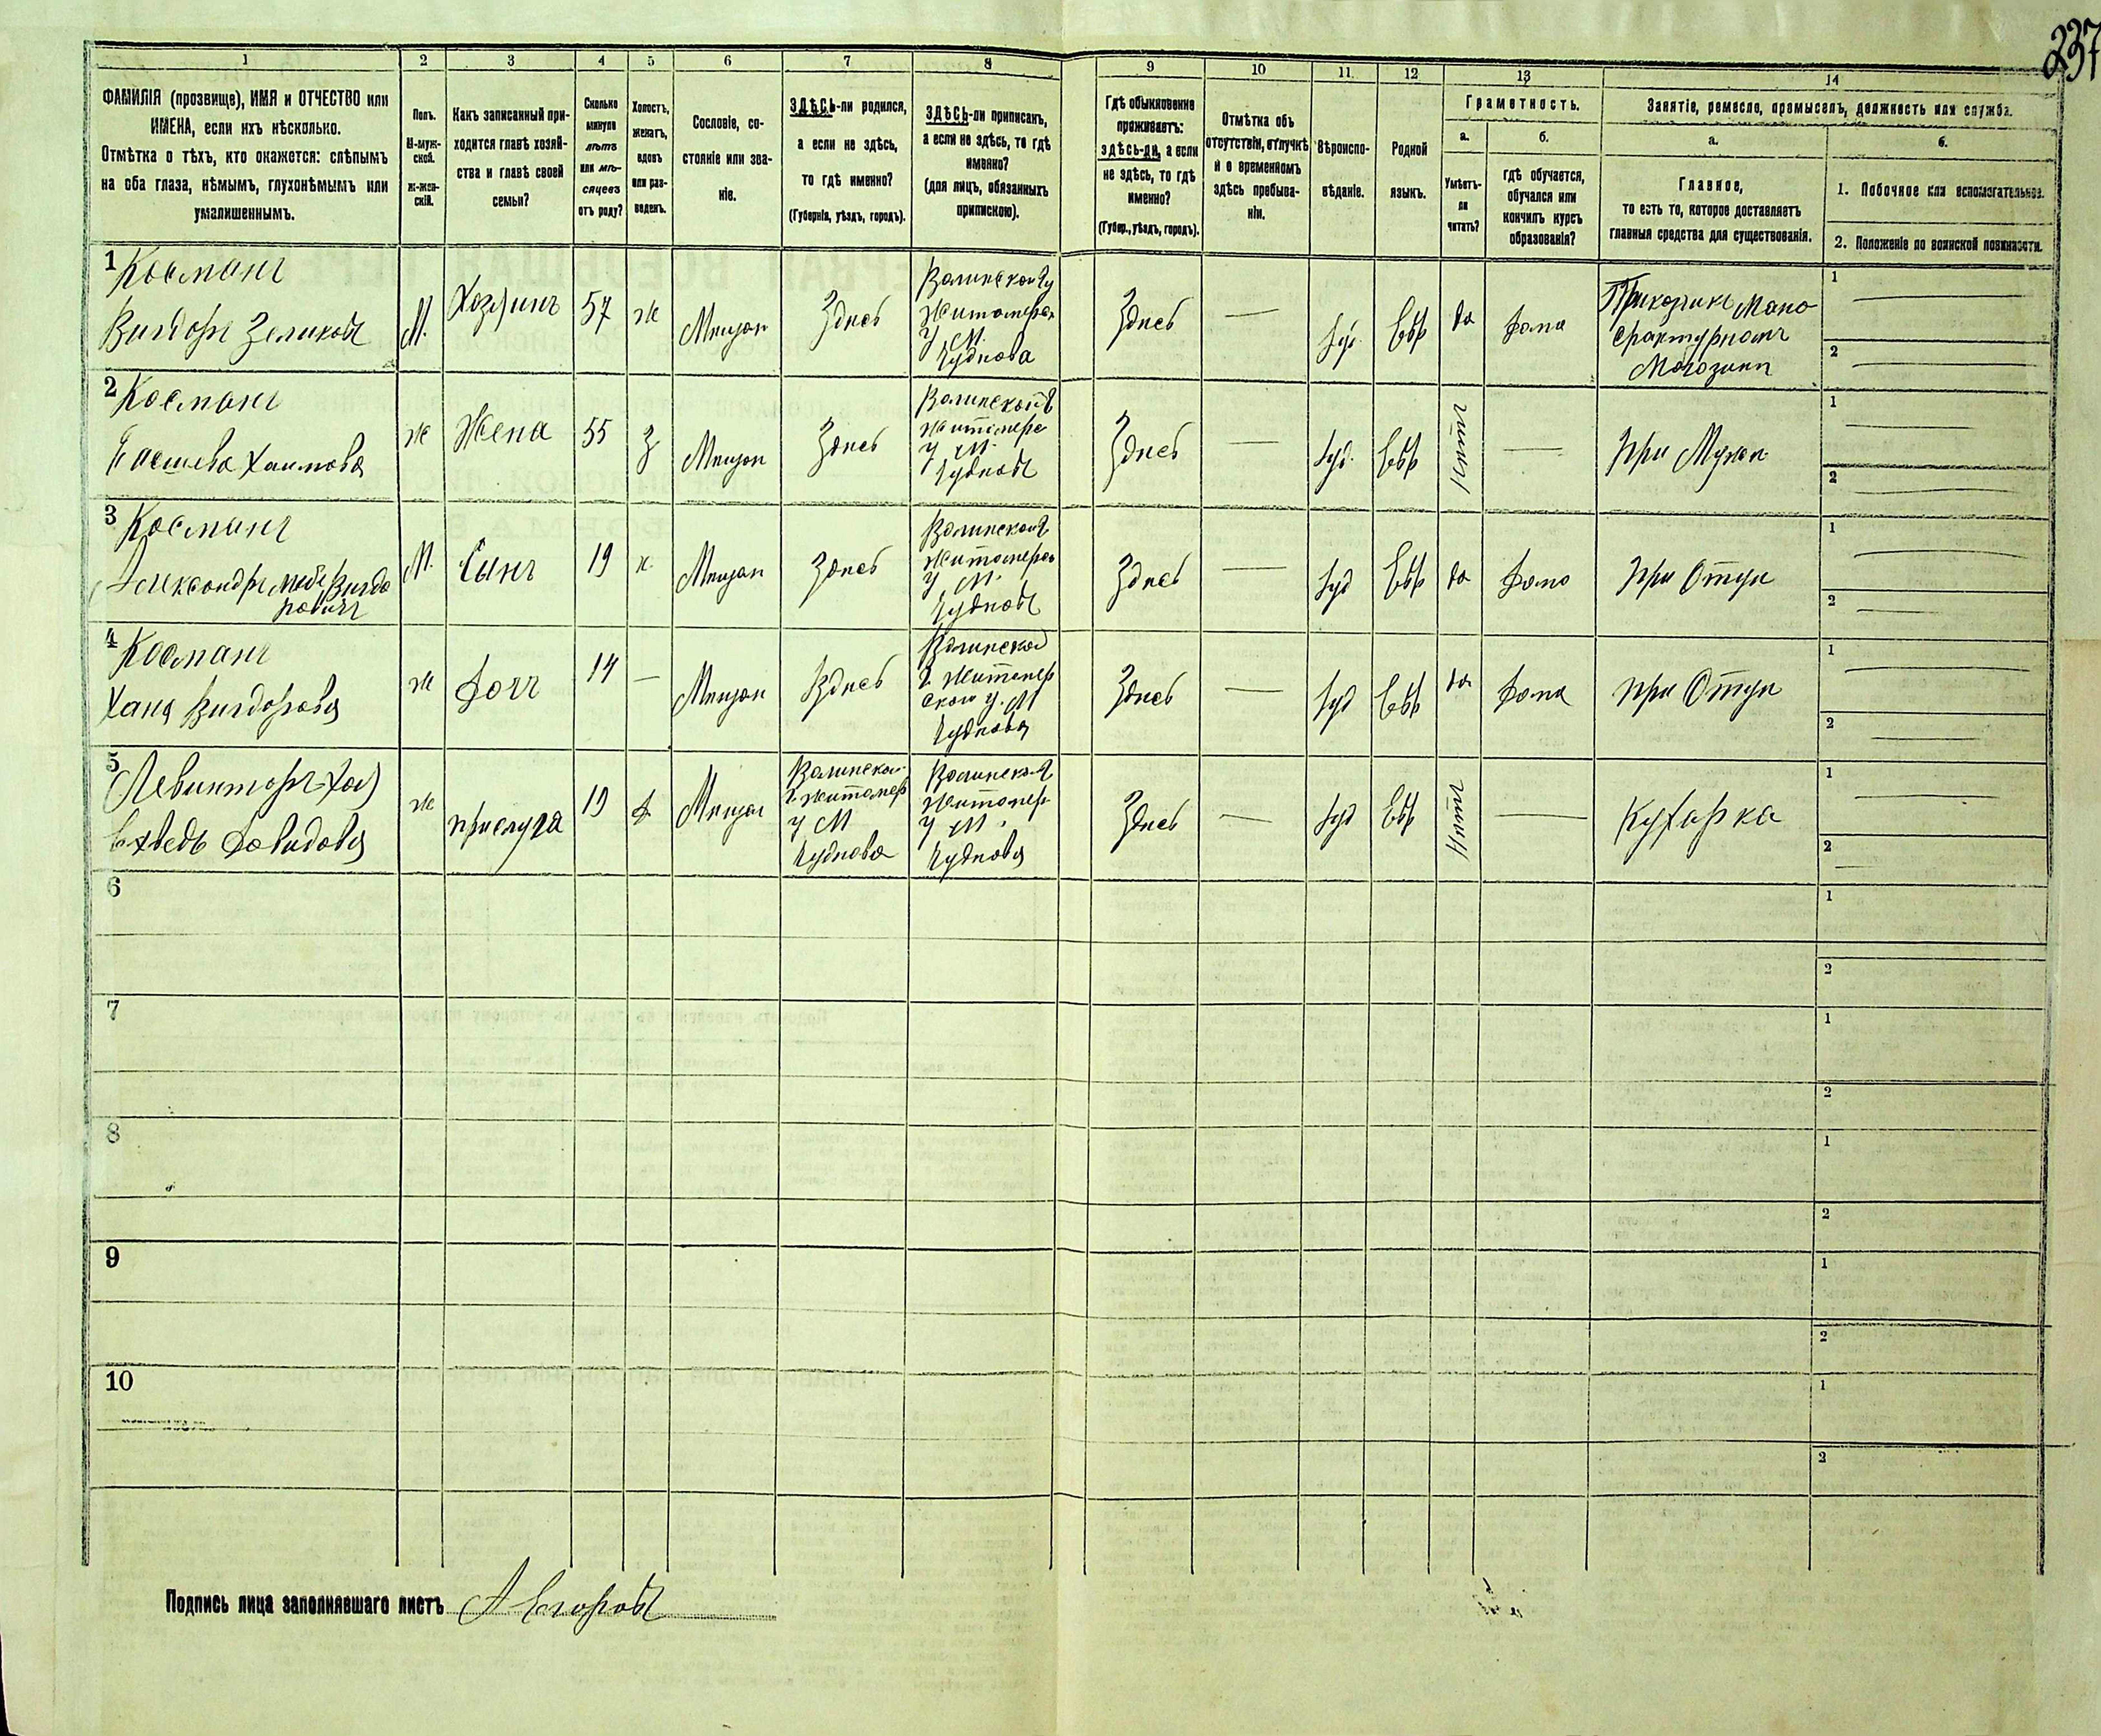 237
1 2 3 4 5 6 7 8 9 10 11 12 13 14
ФАМИЛІЯ (прозвище), ИМЯ и ОТЧЕСТВО или
ИМЕНА, если ихъ нѣсколько.
Отмѣтка о тѣхъ, кто окажется: слѣпымъ
на оба глаза, нѣмымъ, глухонѣмымъ или
умалишеннымъ.
Полъ.
М-муж-
ской.
ж-жен-
скій.
Какъ записанный при-
ходится главѣ хозяй-
ства и главѣ своей
семьи?
Сколько
минуло
лѣтъ
или мѣ-
сяцевъ
отъ роду?
Холостъ,
женатъ,
вдовъ
или раз-
веденъ.
Сословіе, со-
стояніе или зва-
ніе.
ЗДѢСЬ-ли родился,
а если не здѣсь,
то гдѣ именно?
(Губернія, уѣздъ, городъ).
ЗДѢСЬ-ли приписанъ,
а если не здѣсь, то гдѣ
именно?
(для лицъ, обязанныхъ
припискою).
Гдѣ обыкновенно
проживаетъ:
здѣсь-ли, а если
не здѣсь, то гдѣ
именно?
(Губер., уѣздъ, городъ).
Отмѣтка объ
отсутствіи, отлучкѣ
и о временномъ
здѣсь пребыва-
ніи.
Вѣроиспо-
вѣданіе.
Родной
языкъ.
Грамотность.
а.
Умѣетъ-
ли
читать?
б.
гдѣ обучается,
обучался или
кончилъ курсъ
образованія?
Занятіе, ремесло, промыселъ, должность или служба.
а.
Главное,
то есть то, которое доставляетъ
главныя средства для существованія.
б.
1. Побочное или вспомогательное.
2. Положеніе по воинской повинности.
1 Косманъ
Вигдоръ Зеликовъ
М.
Хозяинъ
57
ж
Мещан
Здесь
Волинской Гу
Житомерск
У М.
Чуднова
Здесь
—
Іуд.
Евр
да
Дома
Прикащик Мано
фактурномъ
Магазине
1 —
2 —
2 Косманъ
Хаимова
ж
Жена
55
З
Мещан
Здесь
Волинской Г
Житомерс
У М.
Чудновъ
Здесь
—
Іуд.
Евр
нитъ
—
При Мужен
1 —
2 —
3 Косманъ
Александръ Вигдо
ровичъ
М.
Сынъ
19
х.
Мещан
Здесь
Волинской Г
Житомерск
У М.
Чудновъ
Здесь
—
Іуд
Евр
да
Дома
При Отце
1 —
2 —
4 Косманъ
Хана Вигдорова
ж
Дочъ
14
—
Мещан
Здесь
Волинской
Г Житомер
ском У. М
Чуднова
Здесь
—
Іуд
Евр
да
Дома
При Отце
1 —
2 —
5 Левинторъ Хая
Давидова
ж
прислуга
19
Д
Мещан
Волинской
Г Житомер
У М
Чуднова
Волинской Г
Житомер
У М.
Чуднова
Здесь
—
Іуд
Евр
нитъ
—
Кухарка
1 —
2 —
6
1
2
7
1
2
8
1
2
9
1
2
10
1
2
Подпись лица заполнявшаго листъ